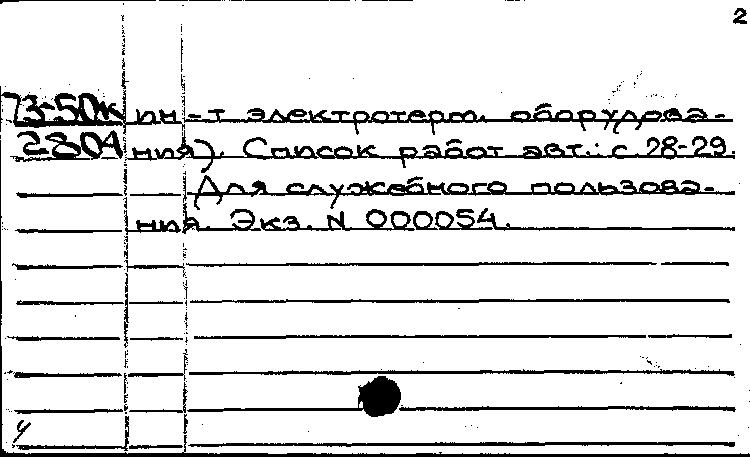 2
73-50к ин-т электротерм. оборудова-
2804 ния). Список работ авт.: с. 28-29.
Для служебного пользова-
ния. Экз. N 000054.